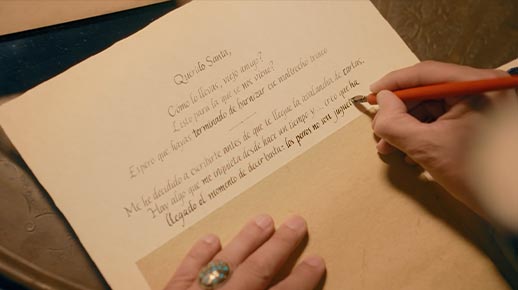 Querido Santa,
Cómo lo llevas, viejo amigo?
Listo para la que se nos viene?
Espero que hayas terminado de barnizar ese maltrecho trineo
Me he decidido a escribirte antes de que te llegue la avalancha de cartas.
Hay algo que me inquieta desde hace un tiempo y... creo que ha
llegado el momento de decir basta: los perros no son juguetes